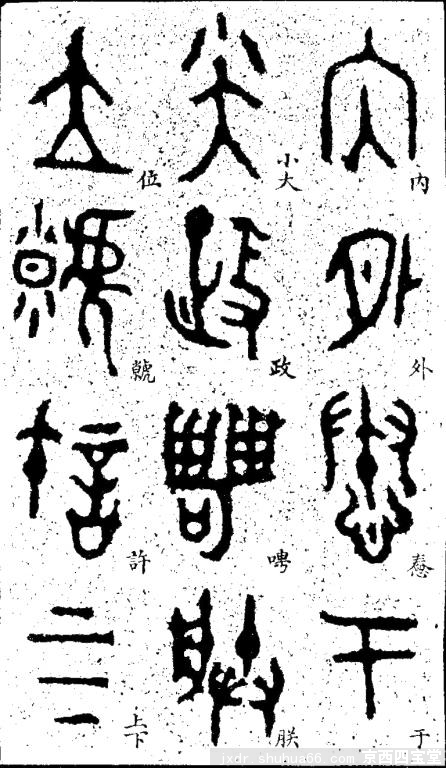 内外惷于
小大政朕
位虩許上下
jxdr.shuhua66.com 京西四宝堂